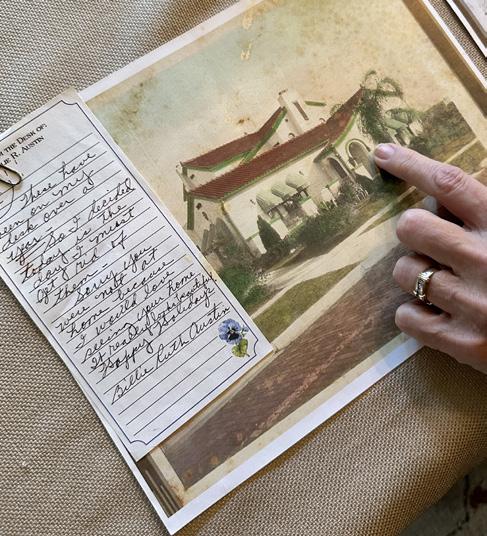 THE DESK OF:
LIE R. AUSTIN
These have
been on my
desk over a
year - So I decided
today is the
day I must
get rid of
them.
Sorry you
were not at
home because
I would love
seeing your home.
It really is beautiful.
Happy Holidays!
Billie Ruth Austin